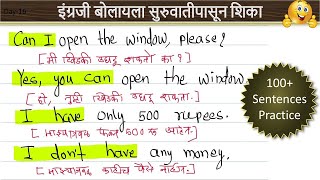 Day-18
इंग्रजी बोलायला सुरुवातीपासून शिका
Can I open the window, please?
[मी खिडकी उघडू शकतो का?]
Yes, you can open the window.
[हो, तुम्ही खिडकी उघडू शकता.]
I have only 500 rupees.
[माझ्याजवळ फक्त 500 रु आहेत.]
I don't have any money.
[माझ्याजवळ काहीच पैसे नाहीत.]
100+
Sentences
Practice